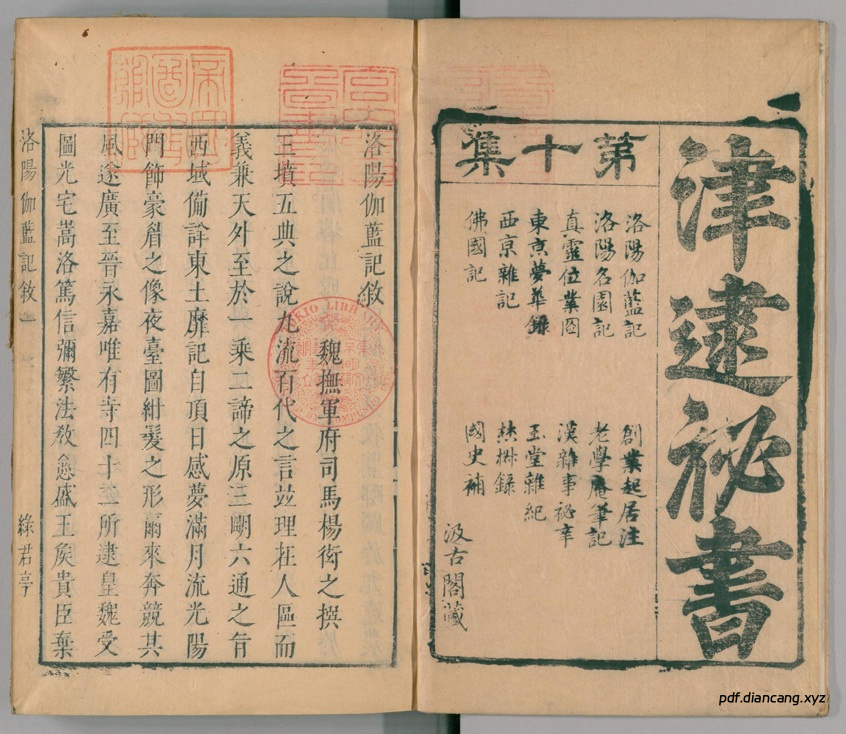 津逮祕書
第十集
洛陽伽藍記　創業起居注
洛陽名園記　老學庵筆記
真靈位業圖　漢雜事祕辛
東京夢華錄　玉堂雜紀
西京雜記　焚椒錄
佛國記　國史補
汲古閣藏
洛陽伽藍記敘
魏撫軍府司馬楊衒之撰
三墳五典之說九流百代之言並理在人區而
義兼天外至於一乘二諦之原三明六通之旨
西域備詳東土靡記自頂日感夢滿月流光陽
門飾豪眉之像夜臺圖紺髮之形爾來奔競其
風遂廣至晉永嘉唯有寺四十二所逮皇魏受
圖光宅嵩洛篤信彌繁法教愈盛王矦貴臣棄
洛陽伽藍記敘　一　綠君亭
TOKIO LIBRARY
pdf.diancang.xyz